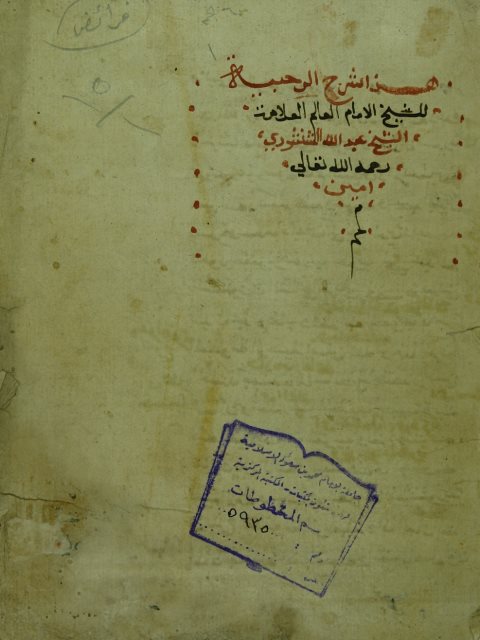 فرائض
هذا شرح الرحبية
للشيخ الامام العالم العلامة
الشيخ عبد الله الشنشوري
رحمه الله تعالى
امين
م
جامعة الإمام محمد بن سعود الإسلامية
المكتبة المركزية
قسم المخطوطات
رقم : ٥٩٣٥